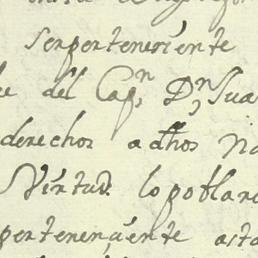 serpertenesiente
del Capn Dn Jua
derechos a dhos Na
Virtud lo poblaro
pertenenciente a esta